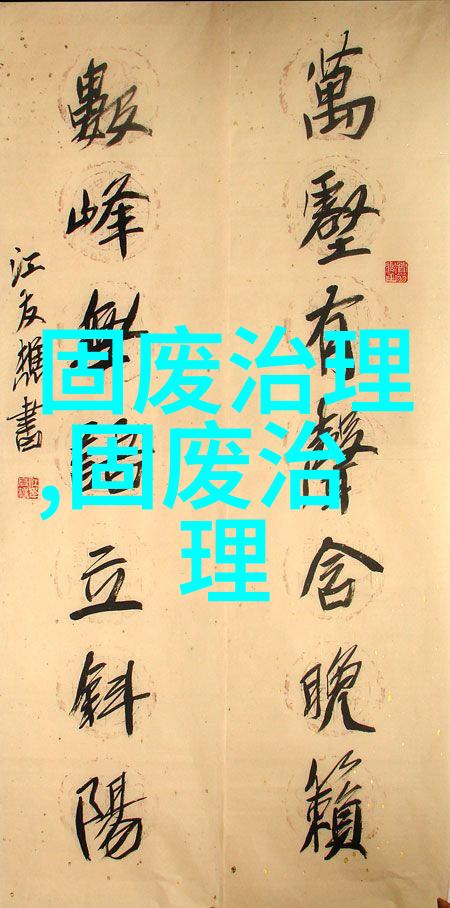 萬壑有聲含晚籟
數峰無語立斜陽
江友樵書
固废治理
,固废治
理